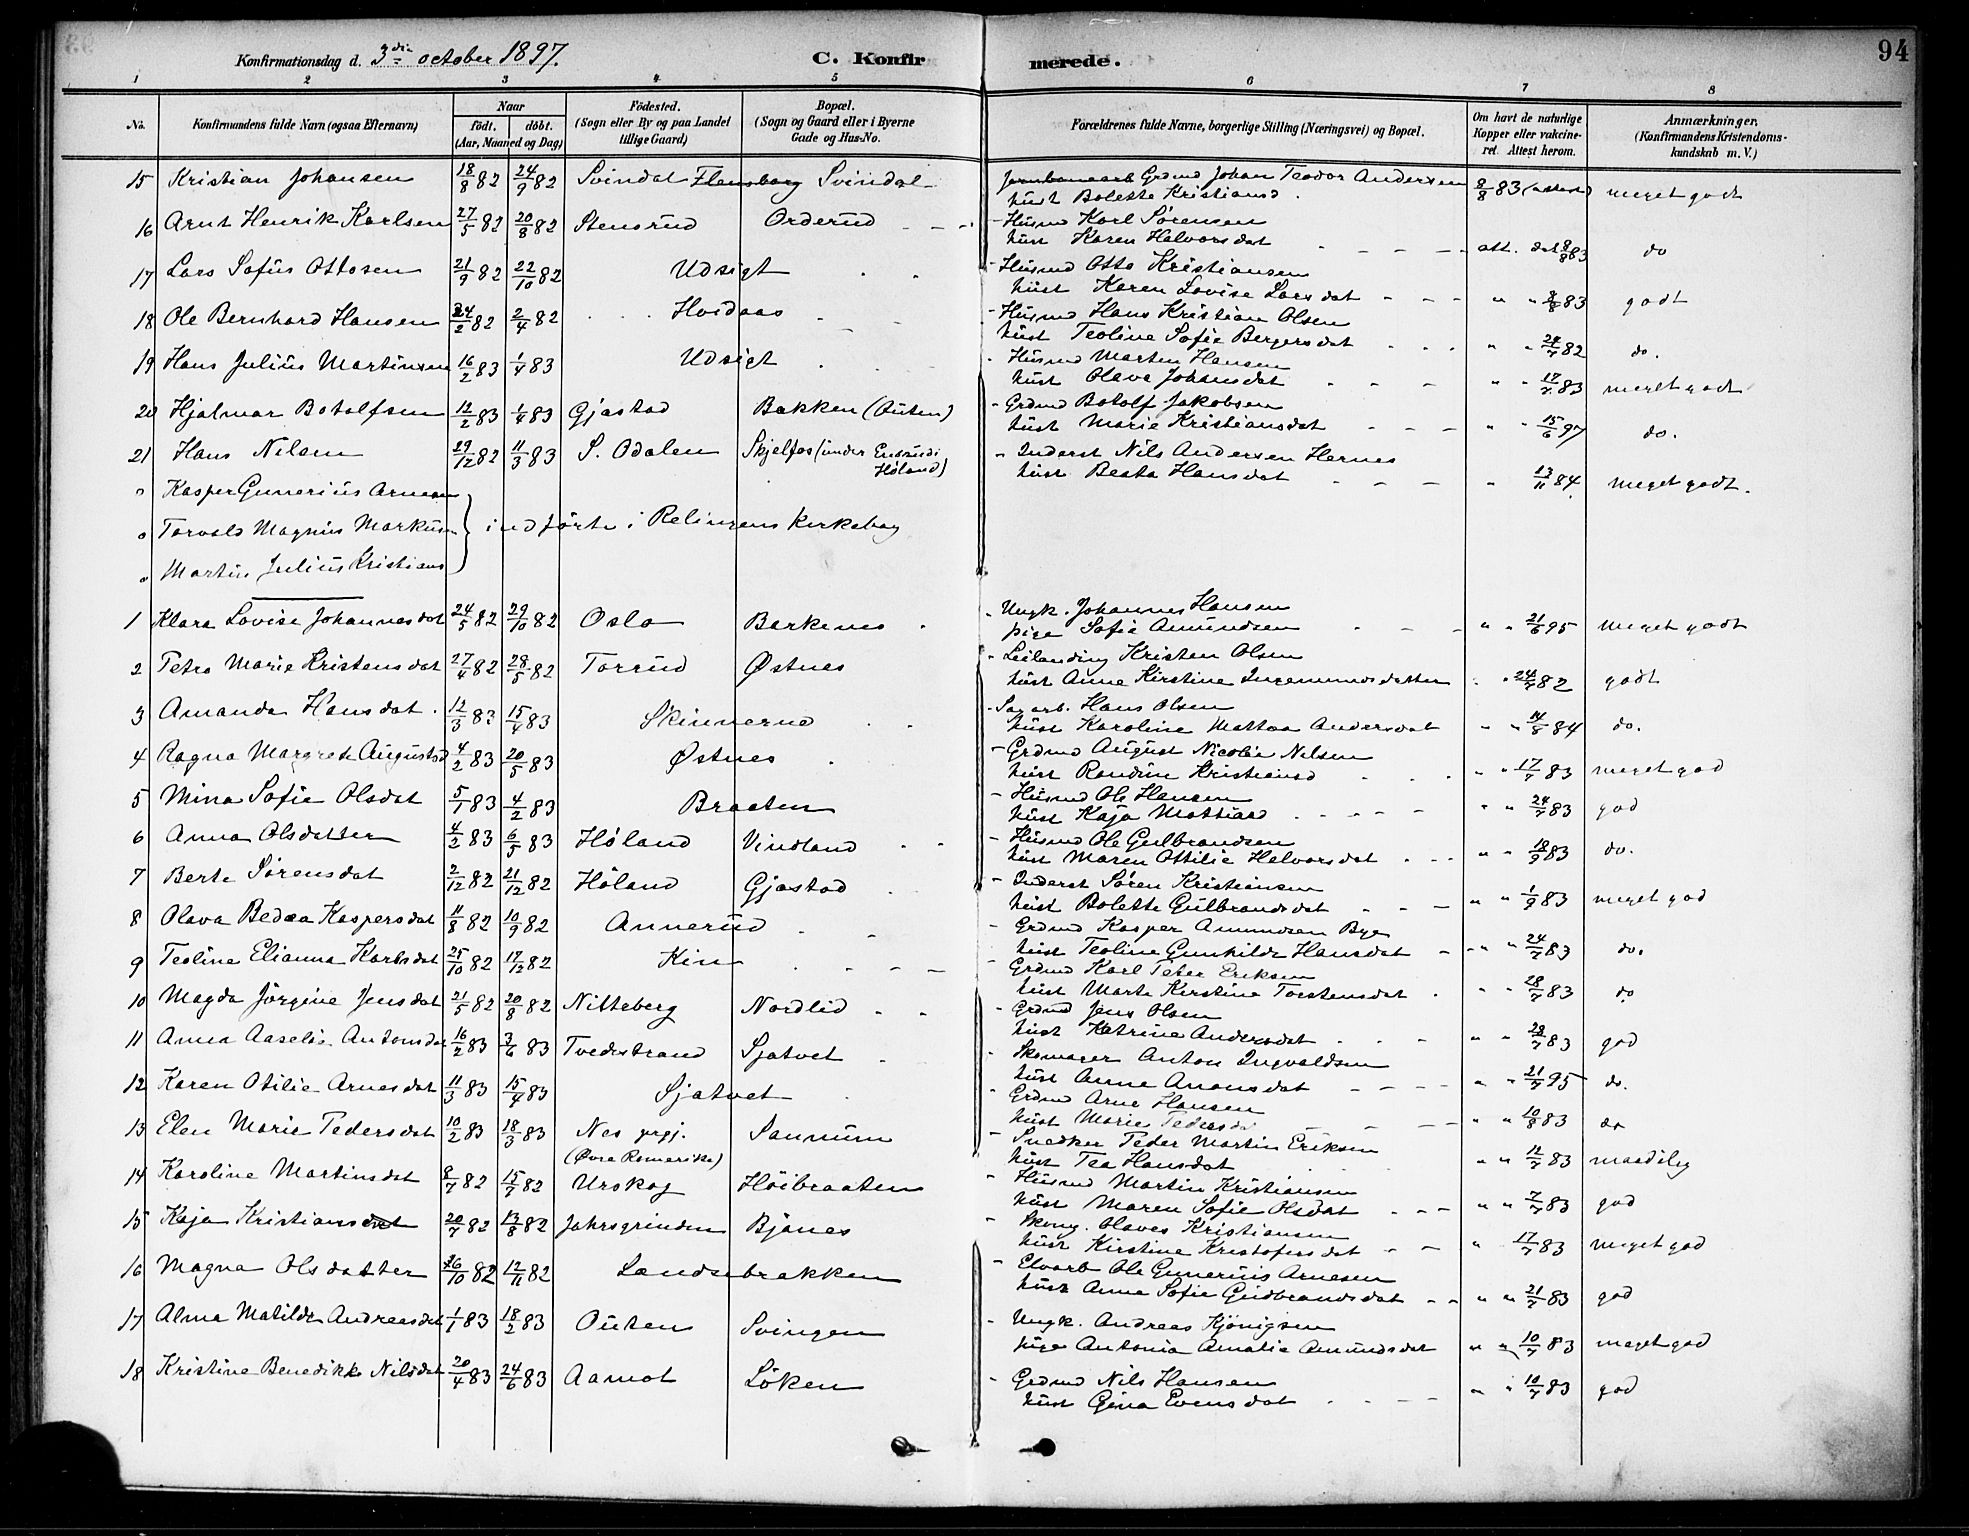 Konfirmationsdag d. 3die october 1897. C. Konfirmerede. 94
1 2 3 4 5 6 7 8
No. Konfirmandens fulde Navn (ogsaa Efternavn) Naar födt. döbt. (Aar, Maaned og Dag) Födested. (Sogn eller By og paa Landet tillige Gaard) Bopæl. (Sogn og Gaard eller i Byerne Gade og Hus-No. Forældrenes fulde Navne, borgerlige Stilling (Næringsvei) og Bopæl. Om havt de naturlige Kopper eller vakcineret. Attest herom. Anmærkninger, (Konfirmandens Kristendomskundskab m. V.)
15 Kristian Johansen 18/8 82 24/9 82 Svindal Flensborg Svindal Jernbanearb Grdmd Johan Teodor Andersen 8/8 83 (attest) meget godt
hust Bolette Kristiansd
16 Arnt Henrik Karlsen 27/5 82 20/8 82 Stensrud Orderud - Husmd Karl Sörensen
hust Karen Halvorsdat att. dat 8/8 83 do
17 Lars Sofus Ottosen 21/9 82 22/10 82 Udsigt - Husmd Otto Kristiansen
hust Karen Lovise Larsdat " " 8/8 83 godt
18 Ole Bernhard Hansen 24/2 82 2/4 82 Hvidaas - Husmd Hans Kristian Olsen
hust Teoline Sofie Bergersdat " " 24/7 82 do.
19 Hans Julius Martinsen 16/2 83 1/4 83 Udsigt - Husmd Marten Hansen
hust Olava Johansdat " " 17/7 83 meget godt
20 Hjalmar Botolfsen 12/2 83 1/4 83 Gjastad Bakken (Outen) - Grdmd Botolf Jakobsen
hust Marie Kristiansdat " " 15/6 97 do.
21 Hans Nilsen 29/12 82 11/3 83 S. Odalen Skjelfos (under Ensrud i Höland) - Inderst Nils Andersen Hernes
hust Beata Hansdat " 13/11 84 meget godt.
" Kasper Gunerius Arnesen
" Torvald Magnus Markus indförte i Relingens Kirkebog
" Martin Julius Kristians
1 Klara Lovise Johannesdat 24/5 82 29/10 82 Oslo Barkenes - Ungk. Johannes Hansen
pige Sofie Amundsen " " 21/6 95 meget godt
2 Petra Marie Kristensdat 27/4 82 28/5 82 Torrud Østnes - Leilænding Kristen Olsen
hust Anne Kirstine Ingemundsdatter " " 24/7 82 godt
3 Amanda Hansdat. 12/3 83 15/4 83 Skinnerud - Sagarb. Hans Olsen
hust Karoline Mattea Andersdat " " 14/8 84 do.
4 Ragna Margrete Augustsd 4/2 83 20/5 83 Østnes - Grdmd August Nicolai Nilsen
hust Randine Kristiansd " " 17/7 83 meget god
5 Mina Sofie Olsdat 5/1 83 4/2 83 Braaten - Husmd Ole Hansen
hust Kaja Mattiasd " " 24/7 83 god
6 Anna Olsdatter 4/2 83 6/5 83 Höland Vindland - Husmd Ole Gulbrandsen
hust Maren Ottilie Halvorsdat " " 18/9 83 do.
7 Berte Sörensdat 2/12 82 21/12 82 Höland Gjastad - Inderst Sören Kristiansen
hust Bolette Gulbrandsdat " " 1/9 83 meget god
8 Olava Bedea Kaspersdat 11/8 82 10/9 82 Annerud - Grdmd Kasper Amundsen Bye
hust Teoline Gunhilde Hansdat " " 24/7 83 do.
9 Teoline Elianna Karlsdat 25/10 82 17/12 82 Kin - Grdmd Karl Peter Eriksen
hust Marte Kirstine Torstensdat " " 28/7 83 do
10 Magda Jörgine Jensdat 21/5 82 20/8 82 Nitteberg Nordlid - Grdmd Jens Olsen
hust Katrine Andersdat " " 28/7 83 god
11 Anna Aaselie Antonsdat 16/2 83 3/6 83 Tvedestrand Sjatvet - Skomager Anton Ingvaldsen
hust Anne Anonsdat " " 21/7 95 do.
12 Karen Otilie Arnesdat 11/3 83 15/4 83 Sjatvet - Grdmd Arne Hansen
hust Marie Pedersda " " 10/8 83 do
13 Elen Marie Pedersdat 10/2 83 18/3 83 Nes prgj. (Øvre Romerike) Sannum - Snedker Peder Martin Eriksen
hust Tea Hansdat " " 12/7 83 maadelig
14 Karoline Martinsdat 8/7 82 15/7 82 Urskog Höibraaten - Husmd Martin Kristiansen
hust Maren Sofie Olsdat " " 7/7 83 god
15 Kaja Kristiansdat 20/7 82 13/8 82 Jahrsgrinden Bjanes - Skomg. Olaves Kristiansen
hust Kirstine Kristofersdat " 17/7 83 meget god
16 Magna Olsdatter 26/10 82 12/11 82 Lændsebrakken - Elvarb Ole Gunerius Arnesen
hust Anne Sofie Gudbrandsdat " " 21/7 83 god
17 Alma Matilde Andreasdat 1/1 83 18/2 83 Outen Svingen - Ungk. Andreas Kjönigsen
pige Antonia Amalie Amundsdat " " 10/7 83 meget god
18 Kristine Benedikke Nilsdat 20/4 83 24/6 83 Aamot Löken - Grdmd Nils Hansen
hust Gina Evensdat " " 10/7 83 god